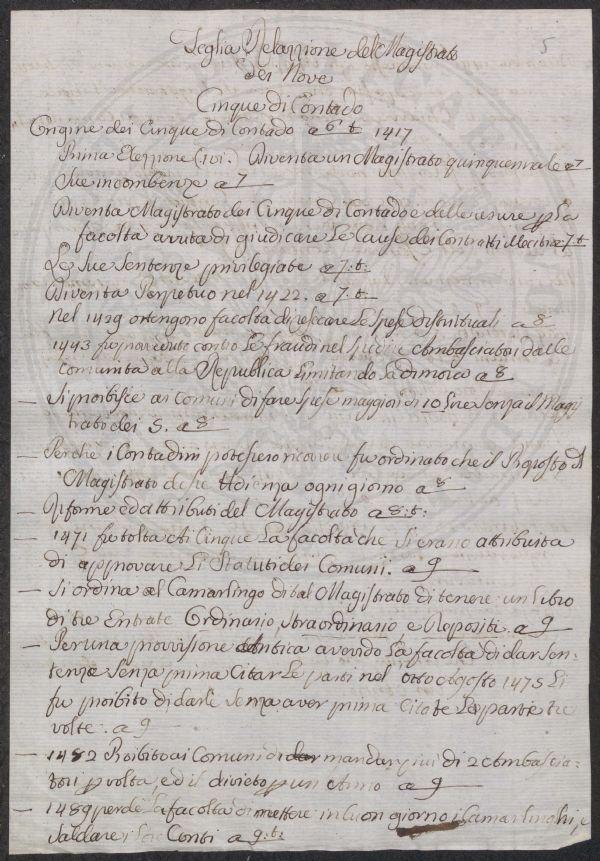 5
Seglia Relazzione del Magistrato
dei Nove
Cinque di Contado
Origine dei Cinque di Contado a 6 t. 1417
Prima Elezzione (ivi). Diventa un Magistrato quinquennale a 7
Sue incombenze a 7
Diventa Magistrato dei Cinque di Contado e delle usure p la
facoltà avuta di giudicare Le Cause dei Contratti Illeciti a 7. t.
Le Sue Sentenze privilegiate a 7. t.
Diventa Perpetuo nel 1422. a 7. t.
Nel 1429 ottengono facoltà di Le Spese distrituali a 8
1443 fu proveduto contro Le fraudi nel Ambasciatori dalle
Comunità alla Republica Limitando La dimora a 8
— Si proibisce ai Comuni di fare Spese maggiori di 10 Lire Senza il Magi
trato dei 5. a 8
— Perchè i Contadini potessero ricorrere fu ordinato che il Proposto d
Magistrato Udienza ogni giorno a 8
— Riforme ed attributi del Magistrato a 8. t.
— 1471 fu tolta ai Cinque La facoltà che Si erano attribuita
di approvare Li Statuti dei Comuni. a 9
— Si ordina al Camarlingo di tal Magistrato di tenere un Libro
di tre Entrate Ordinario, Straordinario e Depositi. a 9
— Per una provvisione antica avendo La facoltà di dar Sen:
tenze Senza prima Citar Le parti nel otto Agosto 1475 Li
fu proibito di darle Senza aver prima Citate Le parti tre
volte. a 9
— 1482 Proibito ai Comuni di mandar più di 2 Ambascia:
tori p volta, ed il divieto p un Anno a 9
— 1489 perde La facoltà di mettere in buon giorno i Camarlinghi, e
Saldare i Loro Conti a 9. t.